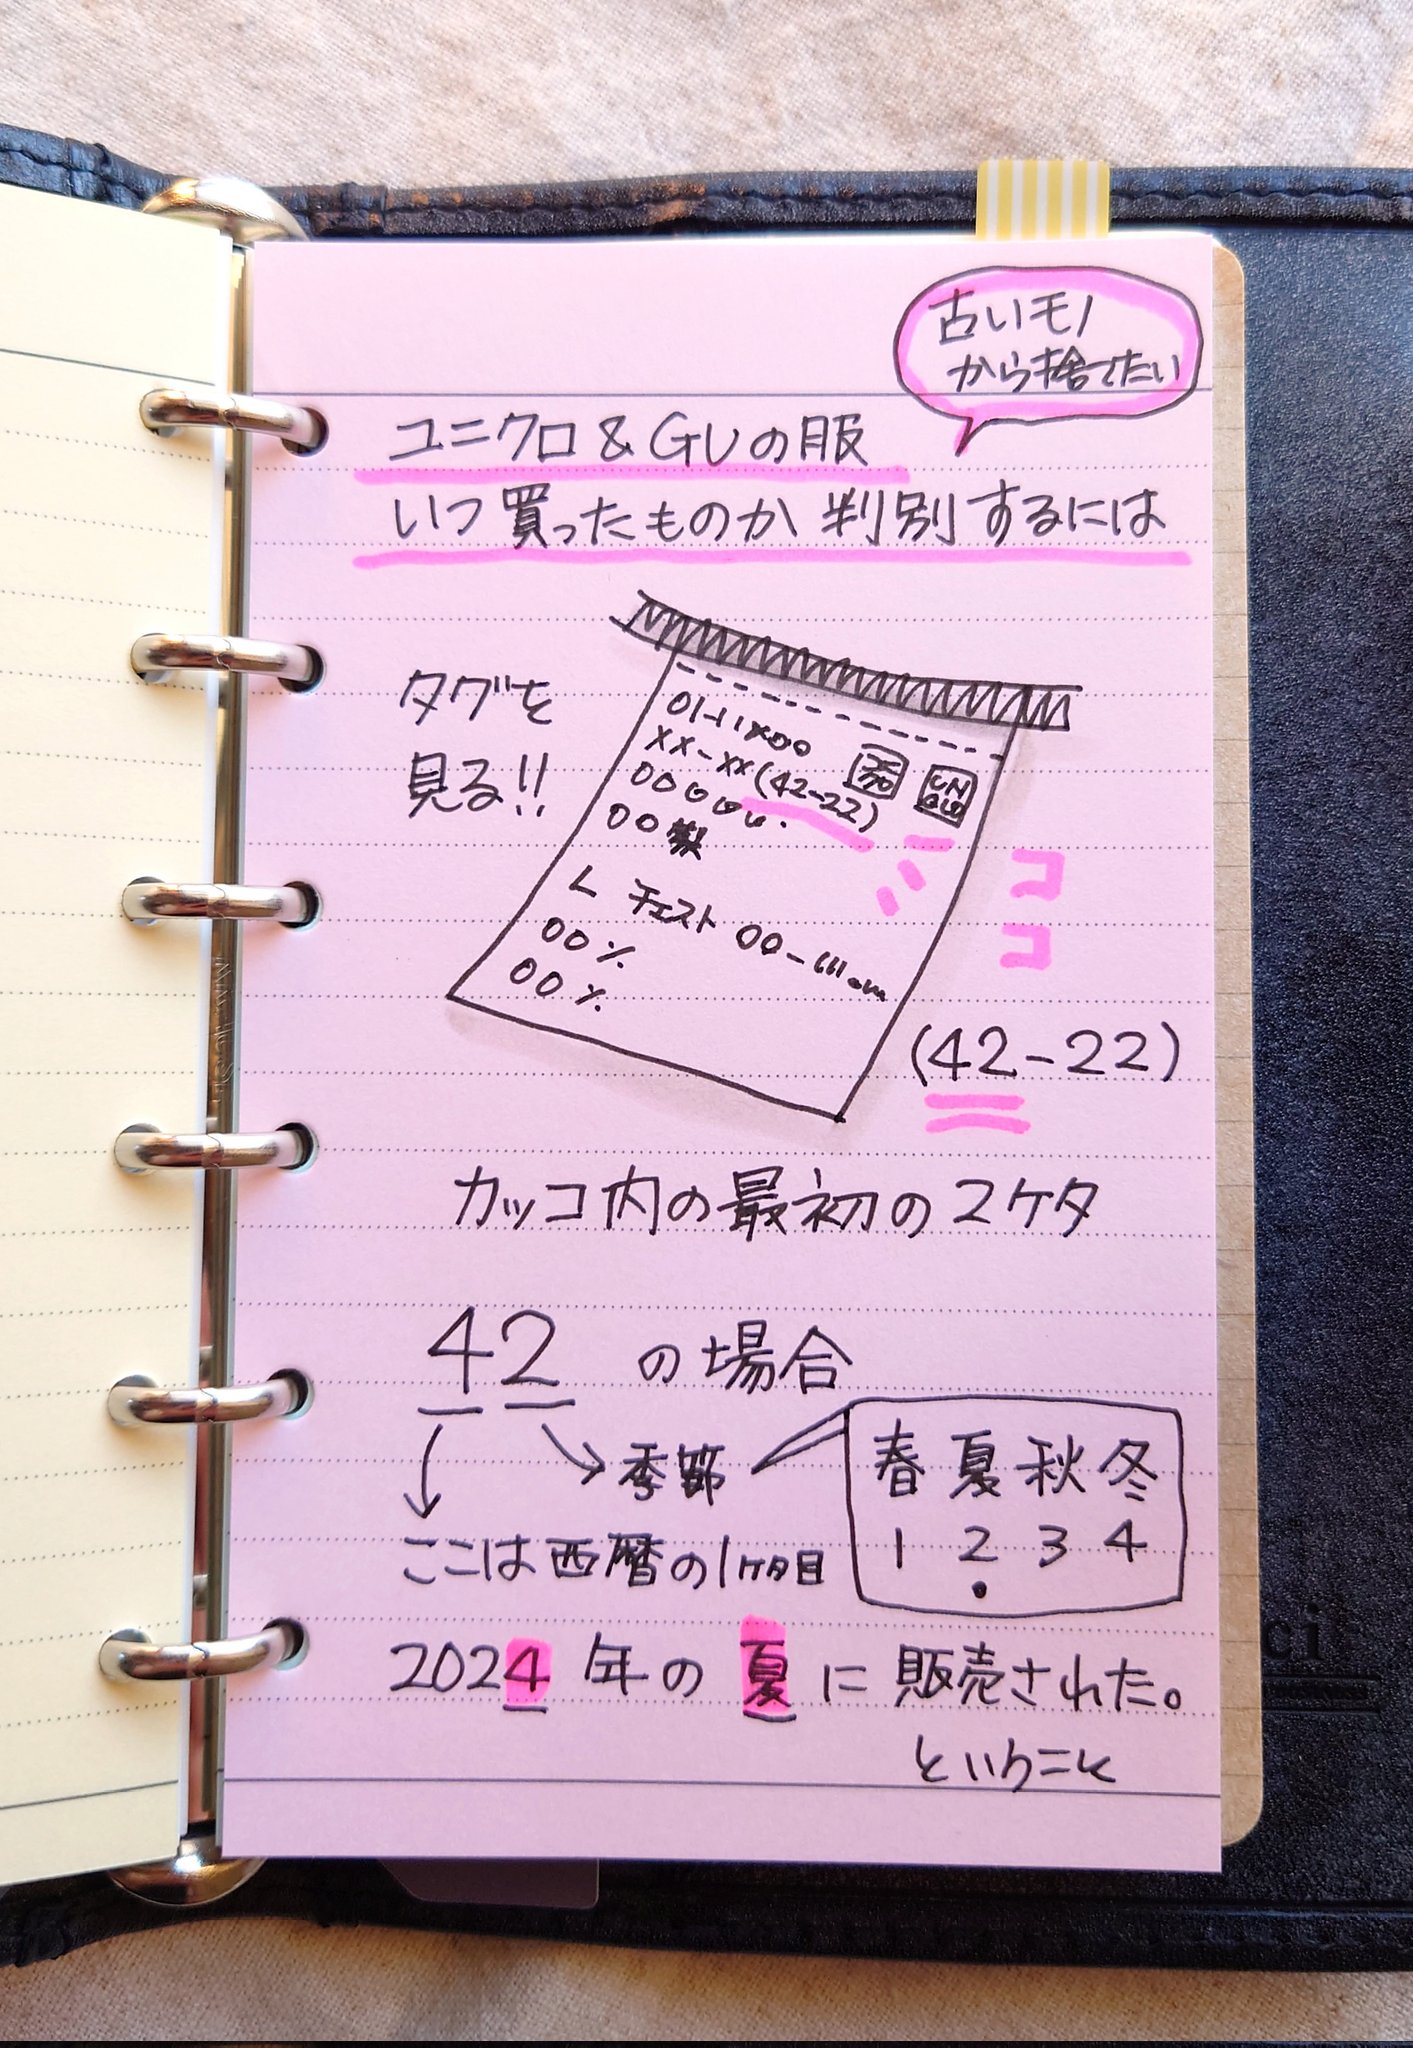 古いモノ
から捨てたい
ユニクロ & GUの服
いつ買ったものか 判別するには
タグを
見る!!
XX-XX(42-22)
〇〇製
L チェスト 〇〇-
〇〇%
〇〇%
ココ
(42-22)
カッコ内の最初の2ケタ
42 の場合
季節
春 夏 秋 冬
1 2 3 4
ここは西暦の1ケタ目
2024年の夏に販売された。
ということ